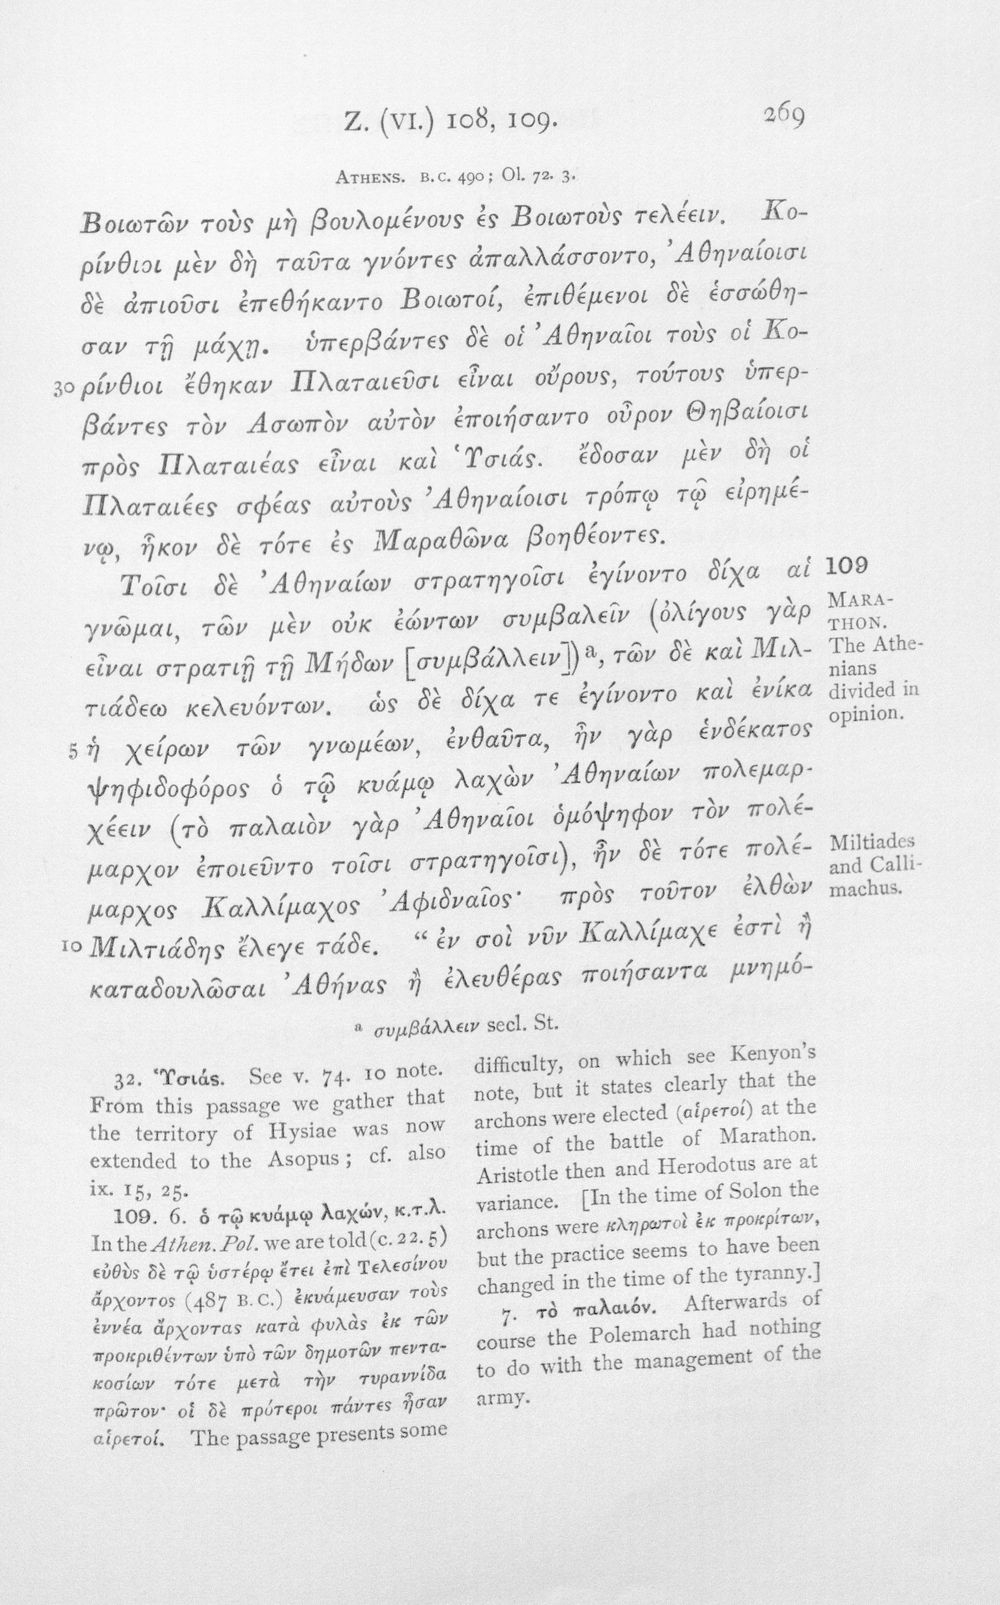 Z. (VI.) 108, 109.
269
ATHENS. B.C. 490; Ol. 72. 3.
Βοιωτῶν τοὺς μὴ βουλομένους ἐς Βοιωτοὺς τελέειν. Κο-
ρίνθιοι μὲν δὴ ταῦτα γνόντες ἀπαλλάσσοντο, Ἀθηναίοισι
δὲ ἀπιοῦσι ἐπεθήκαντο Βοιωτοί, ἐπιθέμενοι δὲ ἑσσώθη-
σαν τῇ μάχῃ. ὑπερβάντες δὲ οἱ Ἀθηναῖοι τοὺς οἱ Κο-
30 ρίνθιοι ἔθηκαν Πλαταιεῦσι εἶναι οὔρους, τούτους ὑπερ-
βάντες τὸν Ἀσωπὸν αὐτὸν ἐποιήσαντο οὖρον Θηβαίοισι
πρὸς Πλαταιέας εἶναι καὶ Ὑσιάς. ἔδοσαν μὲν δὴ οἱ
Πλαταιέες σφέας αὐτοὺς Ἀθηναίοισι τρόπῳ τῷ εἰρημέ-
νῳ, ἧκον δὲ τότε ἐς Μαραθῶνα βοηθέοντες.
Τοῖσι δὲ Ἀθηναίων στρατηγοῖσι ἐγίνοντο δίχα αἱ
γνῶμαι, τῶν μὲν οὐκ ἐώντων συμβαλεῖν (ὀλίγους γὰρ
εἶναι στρατιῇ τῇ Μήδων [συμβάλλειν])a, τῶν δὲ καὶ Μιλ-
τιάδεω κελευόντων. ὡς δὲ δίχα τε ἐγίνοντο καὶ ἐνίκα
5 ἡ χείρων τῶν γνωμέων, ἐνθαῦτα, ἦν γὰρ ἑνδέκατος
ψηφιδοφόρος ὁ τῷ κυάμῳ λαχὼν Ἀθηναίων πολεμαρ-
χέειν (τὸ παλαιὸν γὰρ Ἀθηναῖοι ὁμόψηφον τὸν πολέ-
μαρχον ἐποιεῦντο τοῖσι στρατηγοῖσι), ἦν δὲ τότε πολέ-
μαρχος Καλλίμαχος Ἀφιδναῖος· πρὸς τοῦτον ἐλθὼν
10 Μιλτιάδης ἔλεγε τάδε. “ἐν σοὶ νῦν Καλλίμαχε ἐστὶ ἢ
καταδουλῶσαι Ἀθήνας ἢ ἐλευθέρας ποιήσαντα μνημό-
109
MARA-
THON.
The Athe-
nians
divided in
opinion.
Miltiades
and Calli-
machus.
a συμβάλλειν secl. St.
32. Ὑσιάς. See v. 74. 10 note.
From this passage we gather that
the territory of Hysiae was now
extended to the Asopus; cf. also
ix. 15, 25.
109. 6. ὁ τῷ κυάμῳ λαχών, κ.τ.λ.
In the Athen. Pol. we are told (c. 22. 5)
εὐθὺς δὲ τῷ ὑστέρῳ ἔτει ἐπὶ Τελεσίνου
ἄρχοντος (487 B.C.) ἐκυάμευσαν τοὺς
ἐννέα ἄρχοντας κατὰ φυλὰς ἐκ τῶν
προκριθέντων ὑπὸ τῶν δημοτῶν πεντα-
κοσίων τότε μετὰ τὴν τυραννίδα
πρῶτον· οἱ δὲ πρότεροι πάντες ἦσαν
αἱρετοί. The passage presents some
difficulty, on which see Kenyon's
note, but it states clearly that the
archons were elected (αἱρετοί) at the
time of the battle of Marathon.
Aristotle then and Herodotus are at
variance. [In the time of Solon the
archons were κληρωτοὶ ἐκ προκρίτων,
but the practice seems to have been
changed in the time of the tyranny.]
7. τὸ παλαιόν. Afterwards of
course the Polemarch had nothing
to do with the management of the
army.